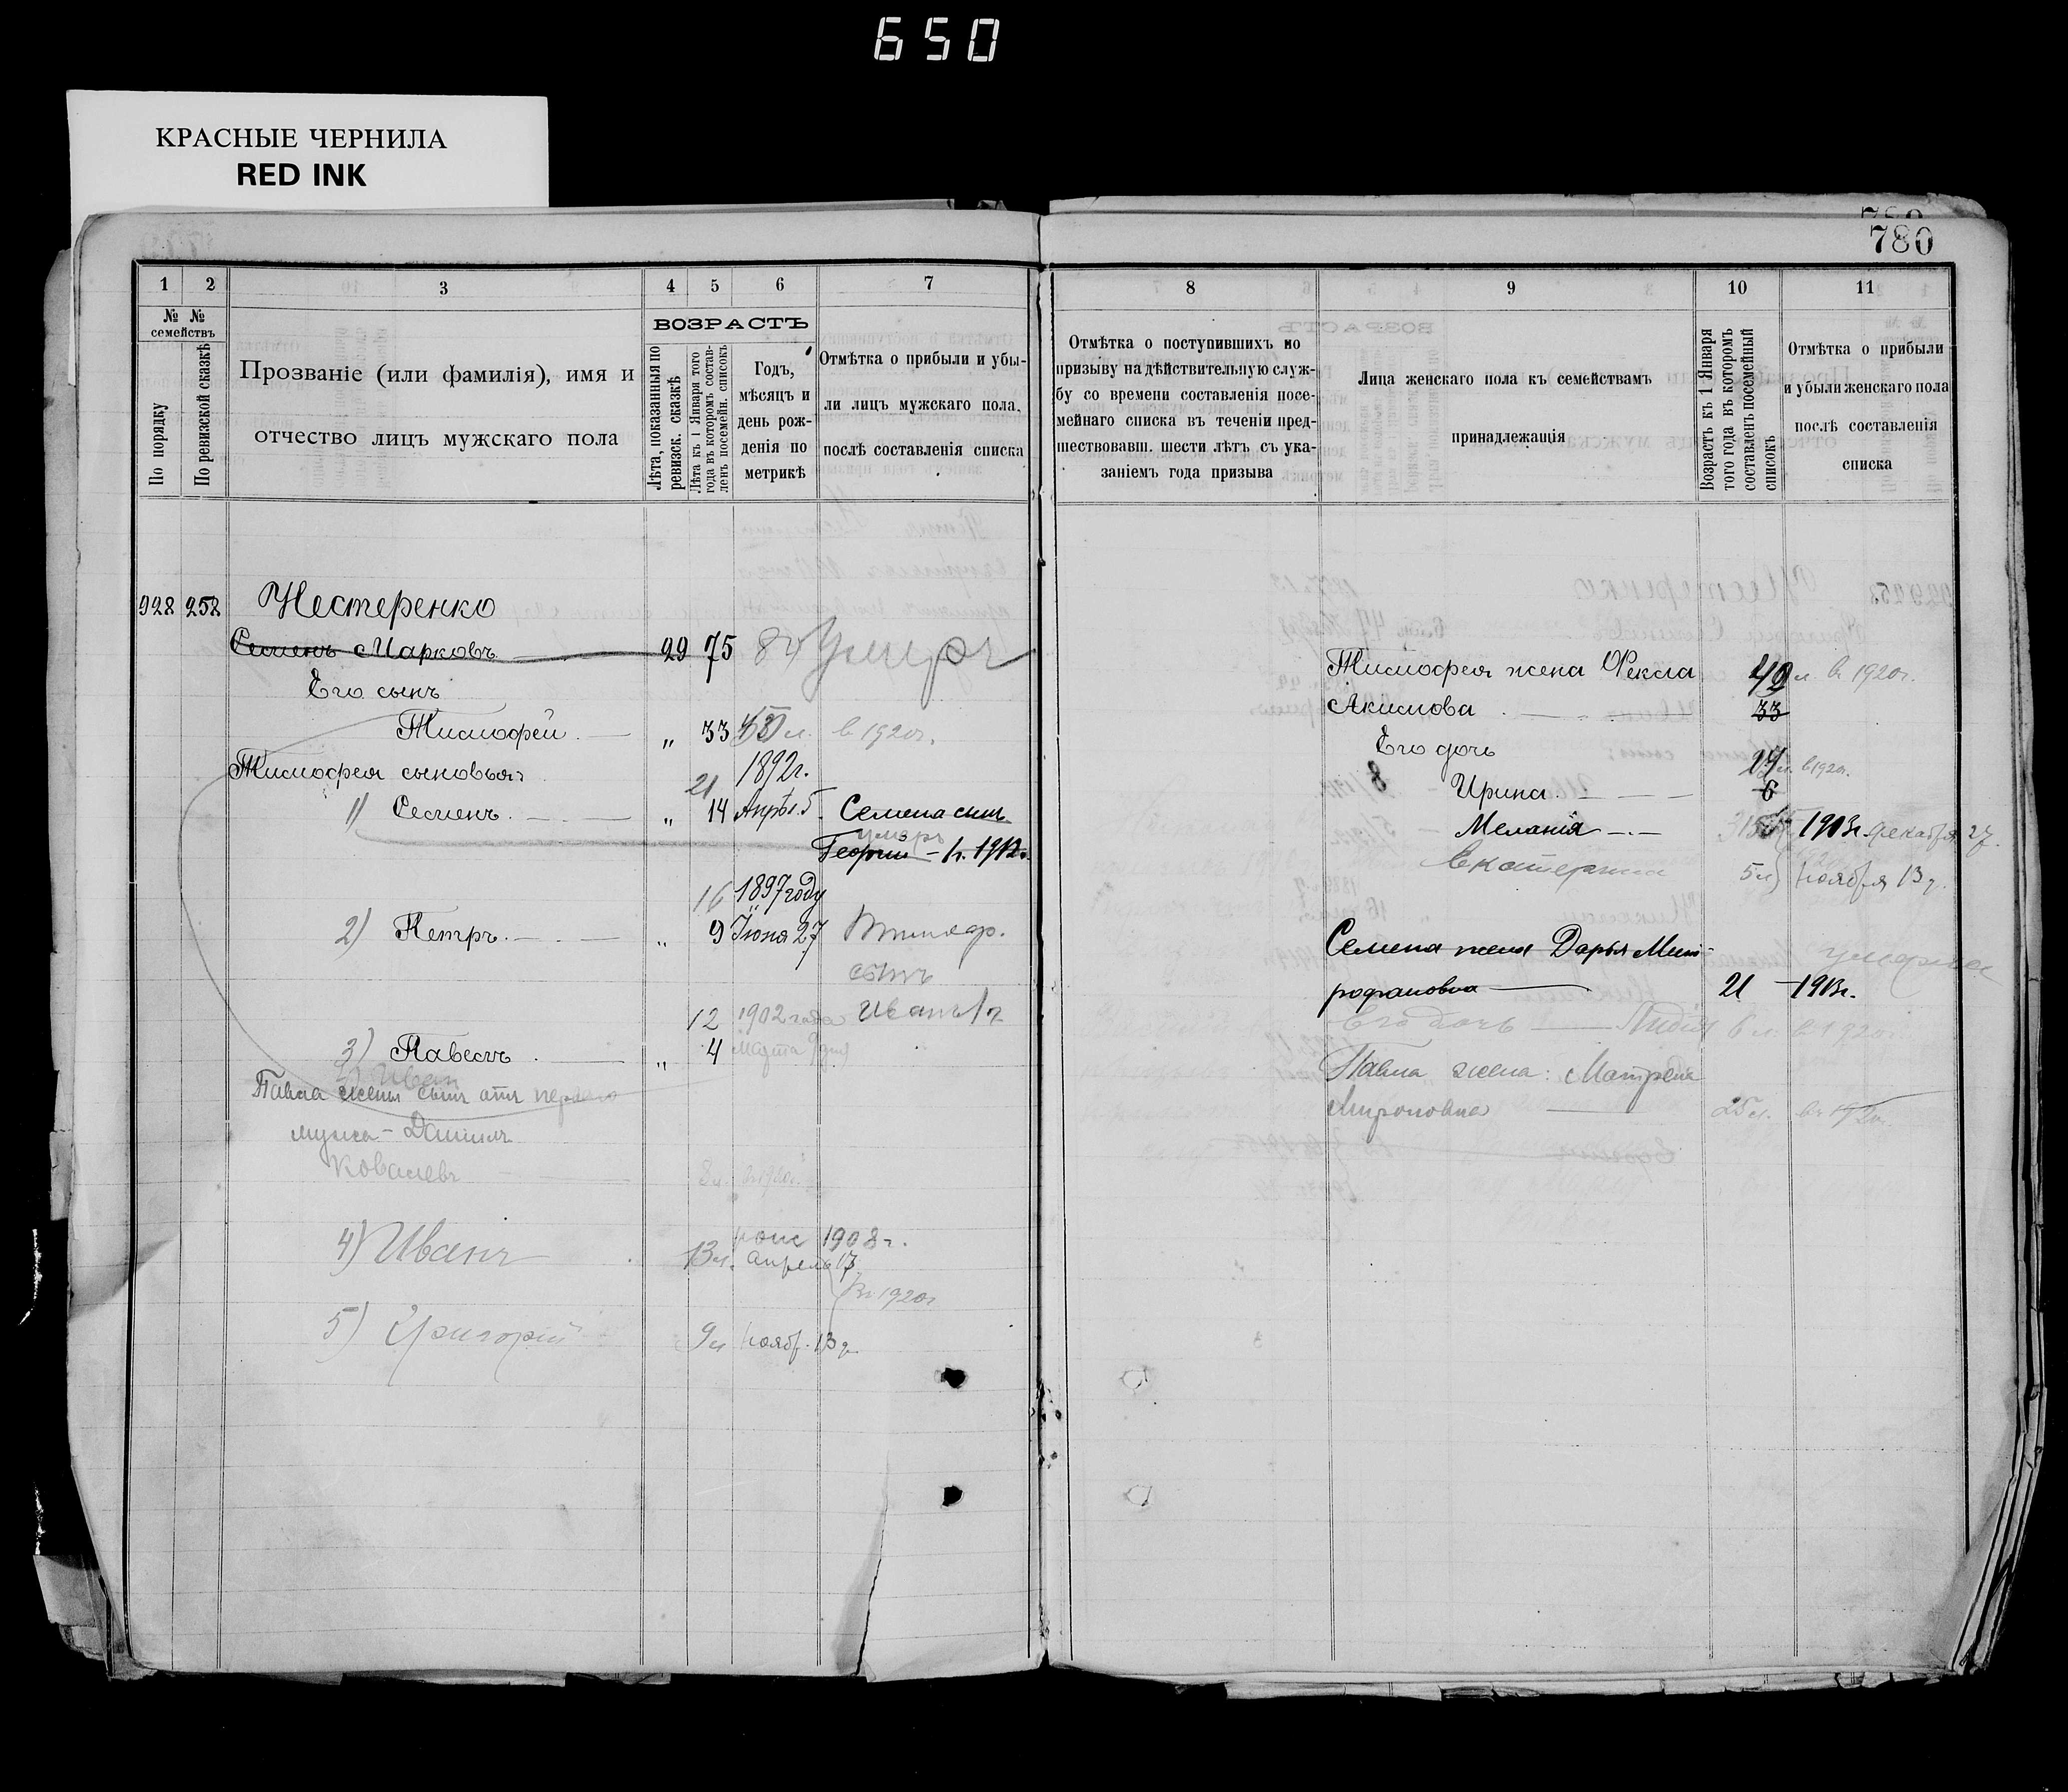 650
КРАСНЫЕ ЧЕРНИЛА
RED INK
780
1 2 3 4 5 6 7
№ № семействъ
По порядку
По ревизской сказкѣ
Прозваніе (или фамилія), имя и
отчество лицъ мужскаго пола
ВОЗРАСТЪ
Лѣта, показанныя по
ревизск. сказкѣ
Лѣта къ 1 Января того
года въ которомъ состав-
ленъ посемейн. списокъ
Годъ,
мѣсяцъ и
день рож-
денія по
метрикѣ
Отмѣтка о прибыли и убы-
ли лицъ мужскаго пола,
послѣ составленія списка
928 258 Нестеренко
Семенъ Марковъ 29 75 84 Умеръ
Его сынъ
Тимофей „ 33 л. в 1920г.
Тимофея сыновья:
21 1892г.
1) Семенъ „ 14 Апрѣл. 5. Семена сынъ
умеръ
Георгій – 1г. 1912г.
16 1897 году
2) Петръ „ 9 Іюня 27
сынъ
12 1902 года Иванъ 1г
3) Павелъ „ 4 Марта 9 дня
Иван
Павла жены сынъ отъ перваго
мужа – Даніилъ
Ковалевъ 8л. в 1920г.
4) Иванъ 13л. 1908г.
апреля 17
в 1920г
5) Григорій 9л ноябр. 13г.
8 9 10 11
Отмѣтка о поступившихъ по
призыву на дѣйствительную служ-
бу со времени составленія посе-
мейнаго списка въ теченіи пред-
шествовавш. шести лѣтъ съ ука-
заніемъ года призыва
Лица женскаго пола къ семействамъ
принадлежащія
Возрастъ къ 1 Января
того года въ которомъ
составленъ посемейный
списокъ
Отмѣтка о прибыли
и убыли женскаго пола
послѣ составленія
списка
Тимофея жена Фекла л в 1920г.
Акимова 33
Его дочь
в 1920г.
Ирина 6
Меланія 1903г. Декабря 27.
Екатерина 5л ноября 13г.
Семена жена Дарья Мит-
умерла
рофановна 21 1913г.
Его дочь Лидія 6л. в 1920г.
Павла жена: Матрена
Мироновна 25л. в 1920г.